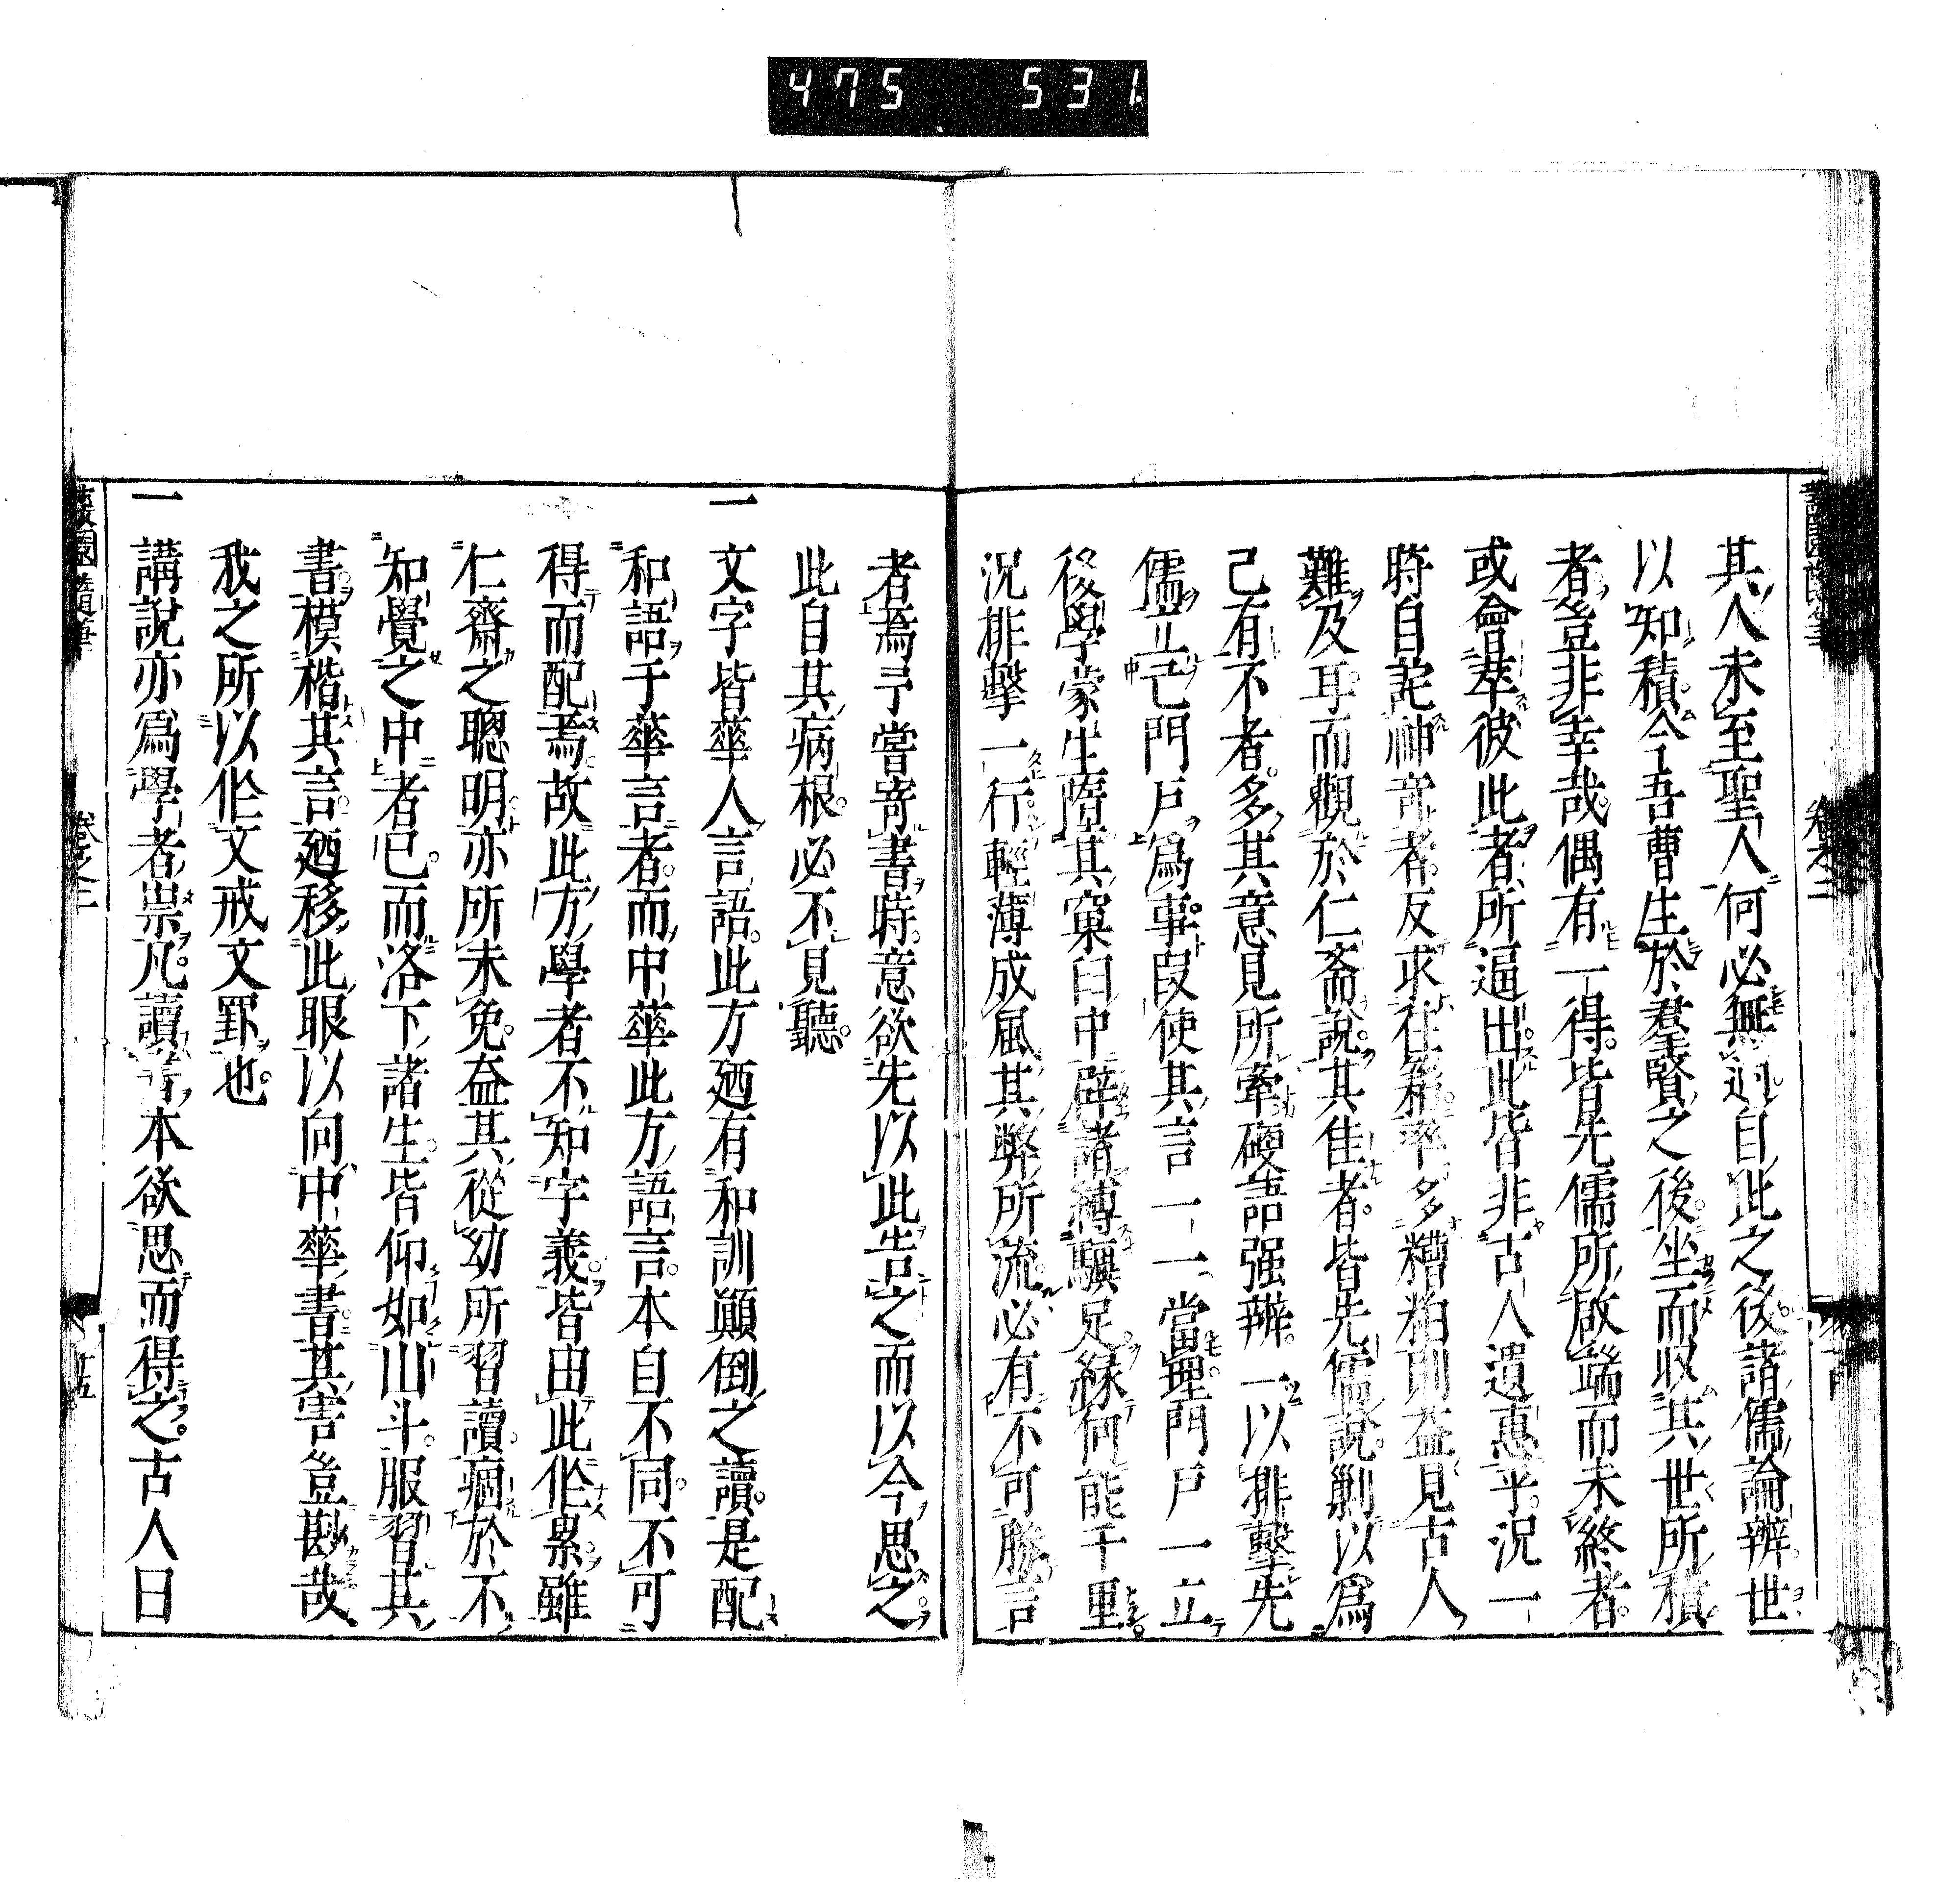 475 531
其人未至聖人何必無過自此之後諸儒論辨世
以知積今吾曹生於羣賢之後坐而収其世所積
者豈非幸哉偶有一得皆先儒所啟端而未終者
或會萃彼此者所逼出此皆非古人遺惠乎況一
時自詫神奇者反求往籍率多糟粕則益見古人
難及耳而觀於仁斎說其佳者皆先儒說剿以爲
己有不者多其意見所牽硬語强辨一以排擊先
儒立己門戸爲事叚使其言一一當理門戸一立
後學蒙生墮其窠臼中辟諸縛驥足緣何能千里
況排擊一行輕薄成風其弊所流必有不可勝言
者焉予當寄書時意欲先以此告之而以今思之
此自其病根必不見聽
一 文字皆華人言語此方廼有和訓顚倒之讀是配
和語于華言者而中華此方語言本自不同不可
得而配焉故此方學者不知字義皆由此作累雖
仁齋之聰明亦所未免益其從幼所習讀痼於不
知覺之中者已而洛下諸生皆仰如山斗服習其
書模楷其言廼移此眼以向中華書其害豈尠哉
我之所以作文戒文罪也
一 講說亦爲學者祟凡讀書本欲思而得之古人曰
蘐園隨筆 卷之二